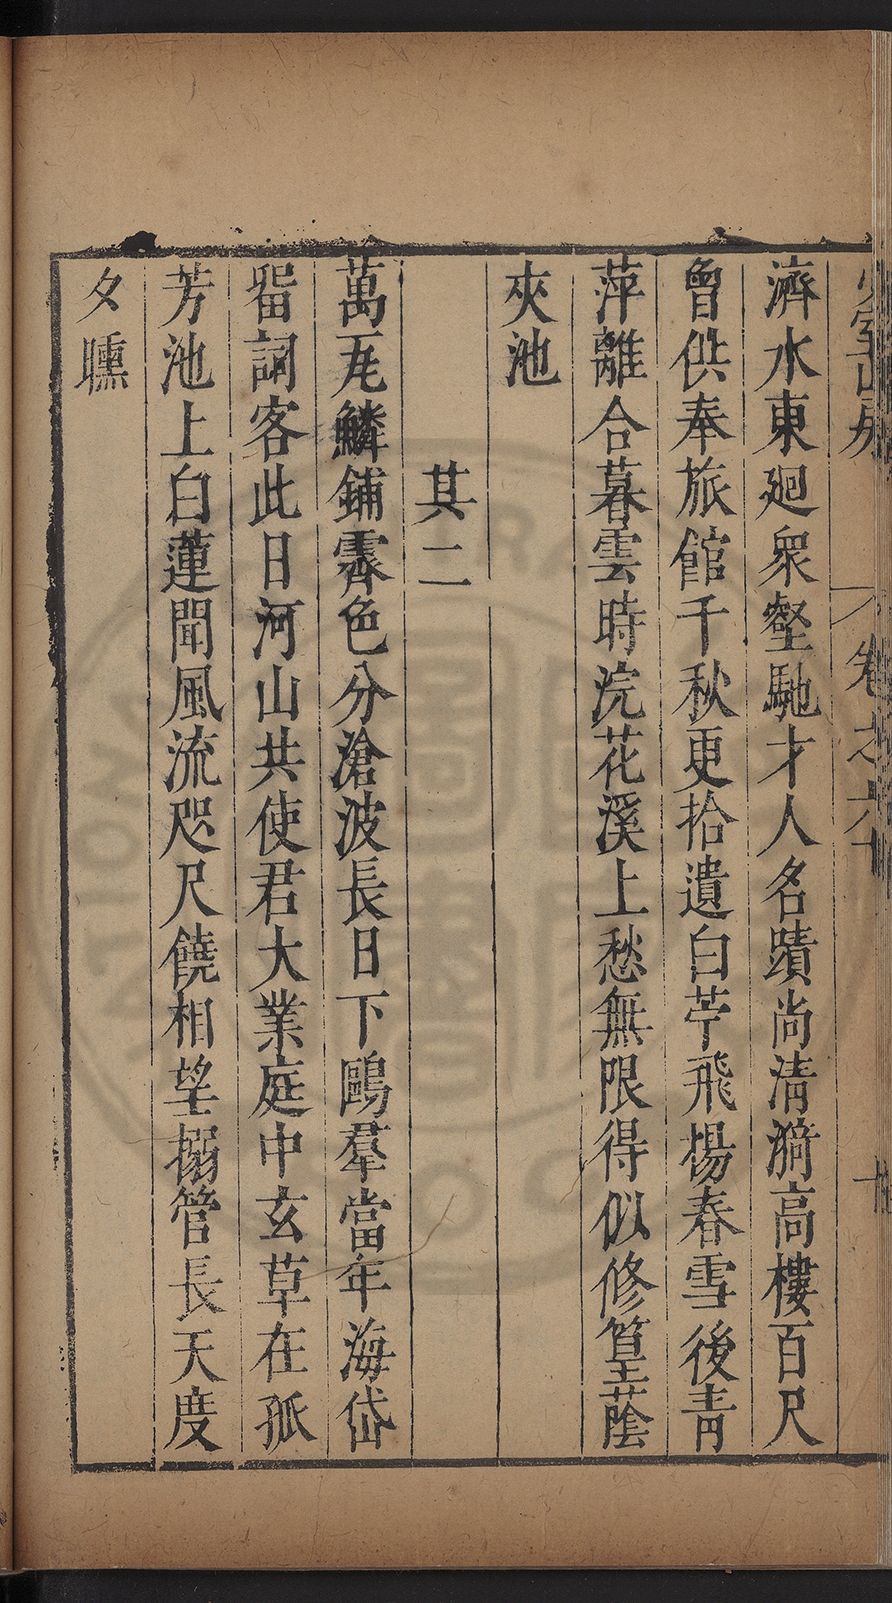 卷之六十
濟水東廻衆壑馳才人名蹟尚清漪高樓百尺
曾供奉旅館千秋更拾遺白苧飛揚春雪後青
萍離合暮雲時浣花溪上愁無限得似修篁蔭
夾池
其二
萬瓦鱗鋪霽色分滄波長日下鷗羣當年海岱
留詞客此日河山共使君大業庭中玄草在孤
芳池上白蓮聞風流咫尺饒相望搦管長天度
夕曛